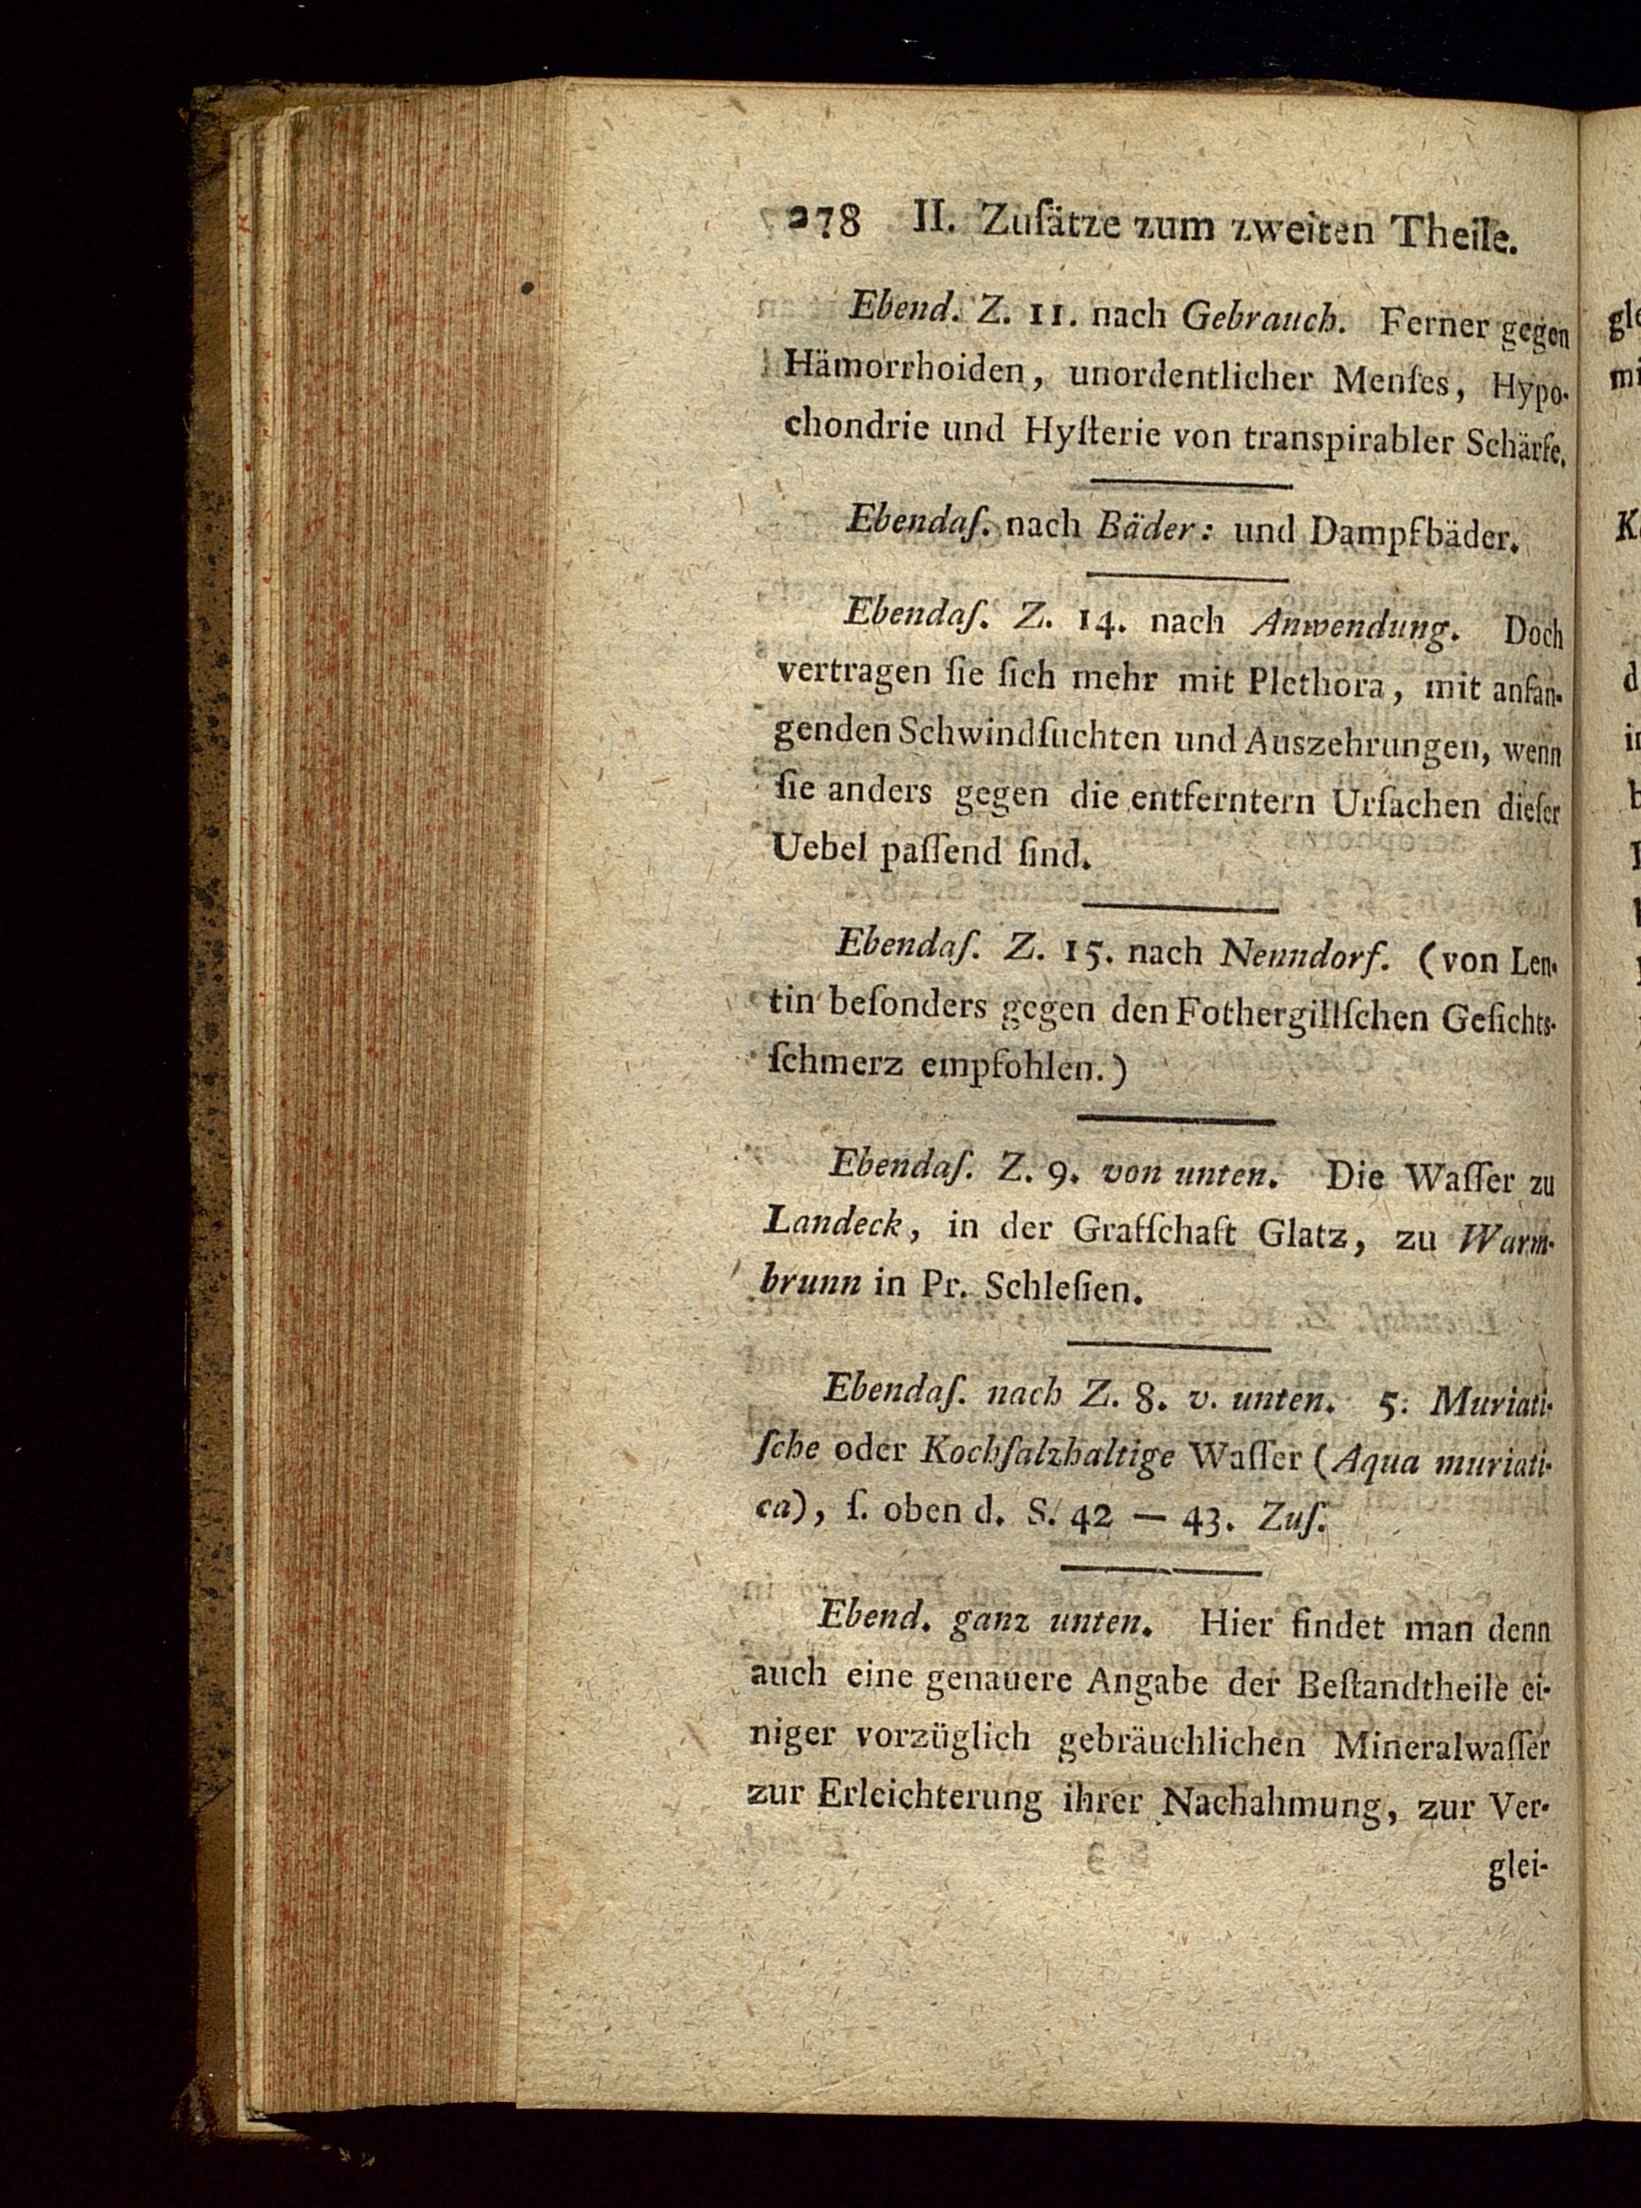 278 II. Zuſätze zum zweiten Theile.
Ebend. Z. 11. nach Gebrauch. Ferner gegen
Hämorrhoiden, unordentlicher Menſes, Hypo-
chondrie und Hyſterie von transpirabler Schärfe.
Ebendaſ. nach Bäder: und Dampfbäder.
Ebendaſ. Z. 14. nach Anwendung. Doch
vertragen ſie ſich mehr mit Plethora, mit anfan-
genden Schwindſuchten und Auszehrungen, wenn
ſie anders gegen die entferntern Urſachen dieſer
Uebel paſſend ſind.
Ebendaſ. Z. 15. nach Nenndorf. (von Len-
tin beſonders gegen den Fothergillſchen Geſichts-
ſchmerz empfohlen.)
Ebendaſ. Z. 9. von unten. Die Waſſer zu
Landeck, in der Grafſchaft Glatz, zu Warm-
brunn in Pr. Schleſien.
Ebendaſ. nach Z. 8. v. unten. 5. Muriati-
ſche oder Kochſalzhaltige Waſſer (Aqua muriati-
ca), ſ. oben d. S. 42 — 43. Zuſ.
Ebend. ganz unten. Hier findet man denn
auch eine genauere Angabe der Beſtandtheile ei-
niger vorzüglich gebräuchlichen Mineralwaſſer
zur Erleichterung ihrer Nachahmung, zur Ver-
glei-